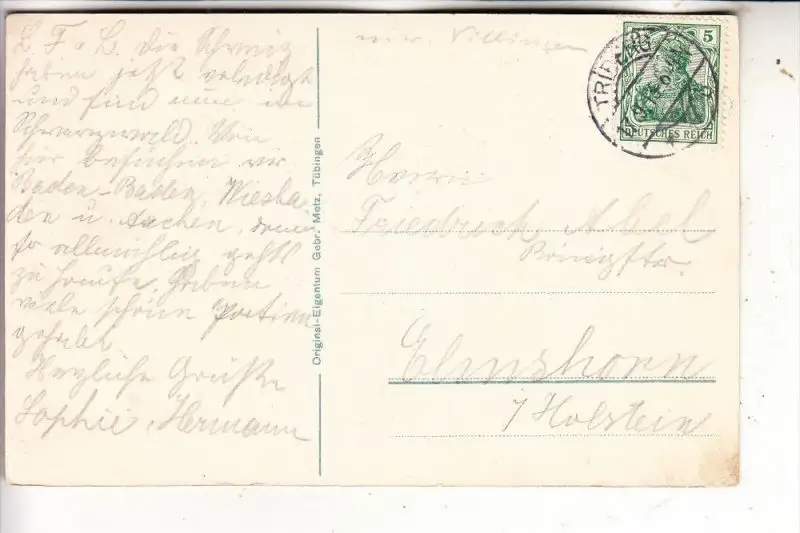 L. F. u. L. die Schweiz
haben jetzt erledigt
und sind nun im
Schwarzwald. Von
hier besuchen wir
Baden-Baden, Wiesba
den u. Aachen, dann
so allmählig geht's
zu Hause. Haben
viele schöne Partien
gehabt.
Herzliche Grüße
Sophie, Hermann
Original-Eigentum Gebr. Metz, Tübingen
Villingen
TRIBERG
5
DEUTSCHES REICH
Herrn
Friedrich Abel
Königstr.
Elmshorn
i/Holstein